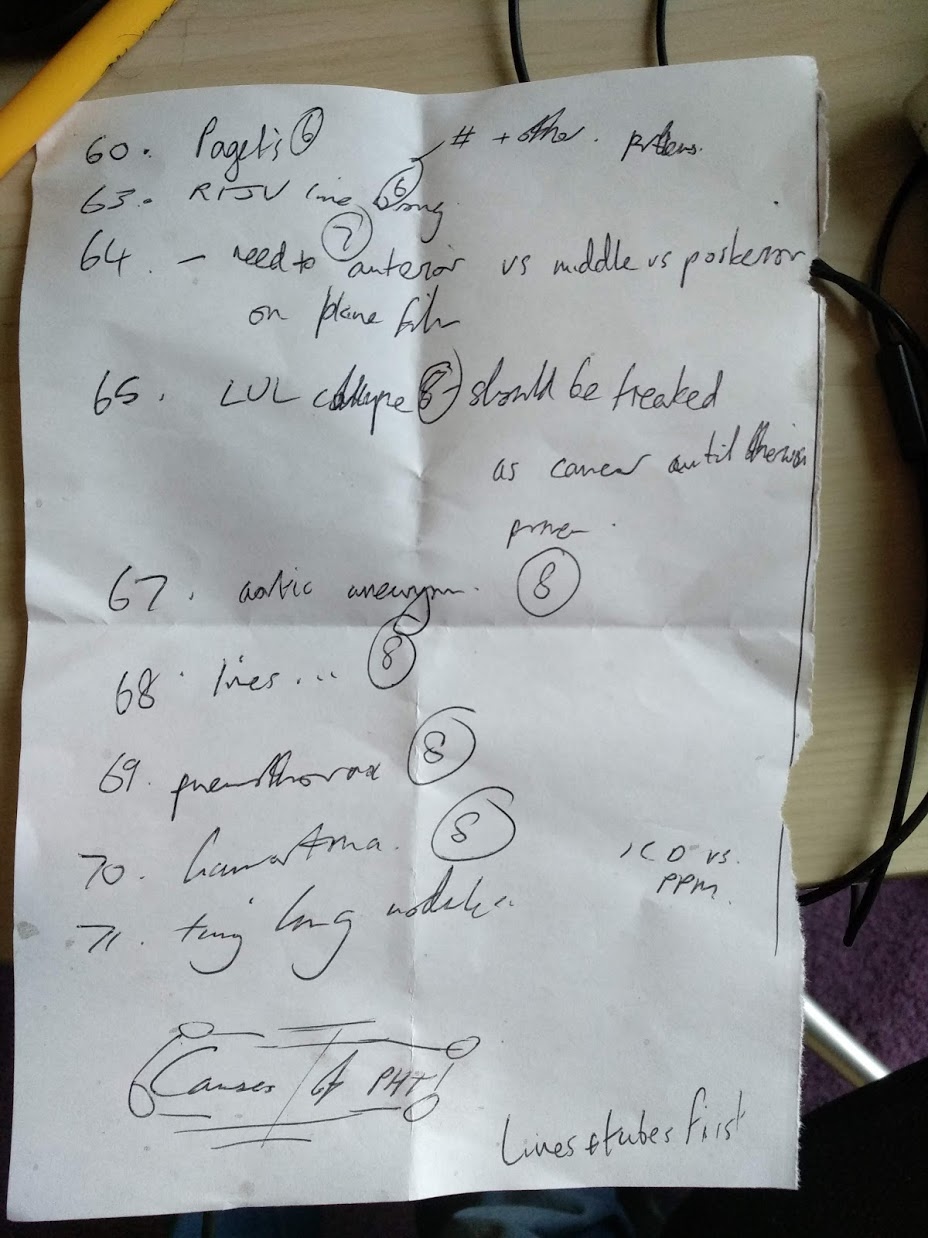 60. Paget's 6
# + other. problems.
63. RIJV line 6 wrong
64. - need to 7 anterior vs middle vs posterior
on plane film
65. LUL collapse 8 - should be treated
as cancer until otherwise
proven.
67. aortic aneurysm. 8
68. lines... 8
69. pneumothorax 8
70. hamartoma. 8
ICD vs.
PPM.
71. tiny lung nodules.
Causes of PHT
Lines & tubes first